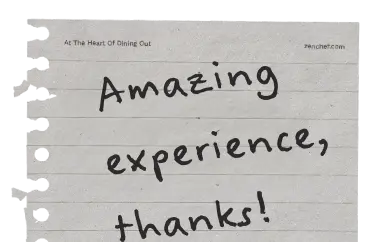 At The Heart Of Dining Out zenchef.com
Amazing
experience,
thanks!